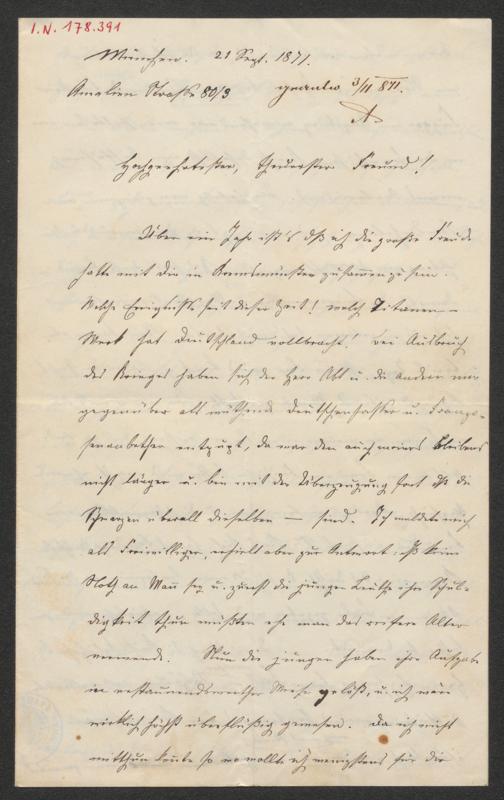 I.N. 178.391
München. 21 Sept. 1871.
Amalien Straße 80/3 3/II 871.
A
Hochgeehrtester, theuerster Freund!
Über ein Jahr ist's dß ich die große Freude
hatte mit dir in Kremsmünster zusammen zu sein.
Welche Ereigniße seit dieser Zeit! welch Titanen-
Werk hat Deutschland vollbracht! Bei Ausbruch
des Krieges haben sich der Herr Abt u. die andern mir
gegenüber als wüthende Deutschenhasser u. Franzo-
senanbether entpupt, da war den auch meines bleibens
nicht länger u. bin mit der Überzeugung fort dß die
Schwarzen überall dieselben — sind. Ich meldete mich
als Freiwilliger, erhielt aber zur Antwort dß keine
Noth an Man sey u. zuerst die jungen Leuthe ihre Schul-
digkeit thun müßten ehe man das reifere Alter
verwende. Nun die jungen haben ihre Aufgabe
in erstaunenswerther Weise gelöst, u. ich wäre
wirklich höchst überflüßig gewesen. Da ich nicht
mitthun konnte so wollte ich wenigstens für die